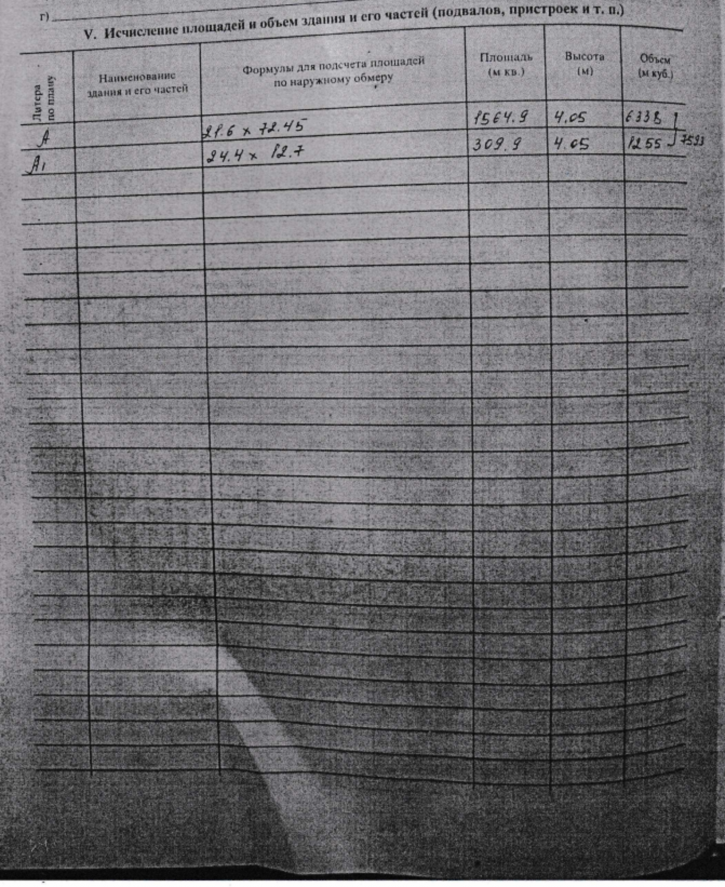 г)
V. Исчисление площадей и объем здания и его частей (подвалов, пристроек и т. п.)
Литера по плану
Наименование здания и его частей
Формулы для подсчета площадей по наружному обмеру
Площаль (м кв.)
Высота (м)
Объем (м куб.)
А 21.6 x 72.45 1564.9 4.05 6338
А1 24.4 x 12.7 309.9 4.05 1255 7593